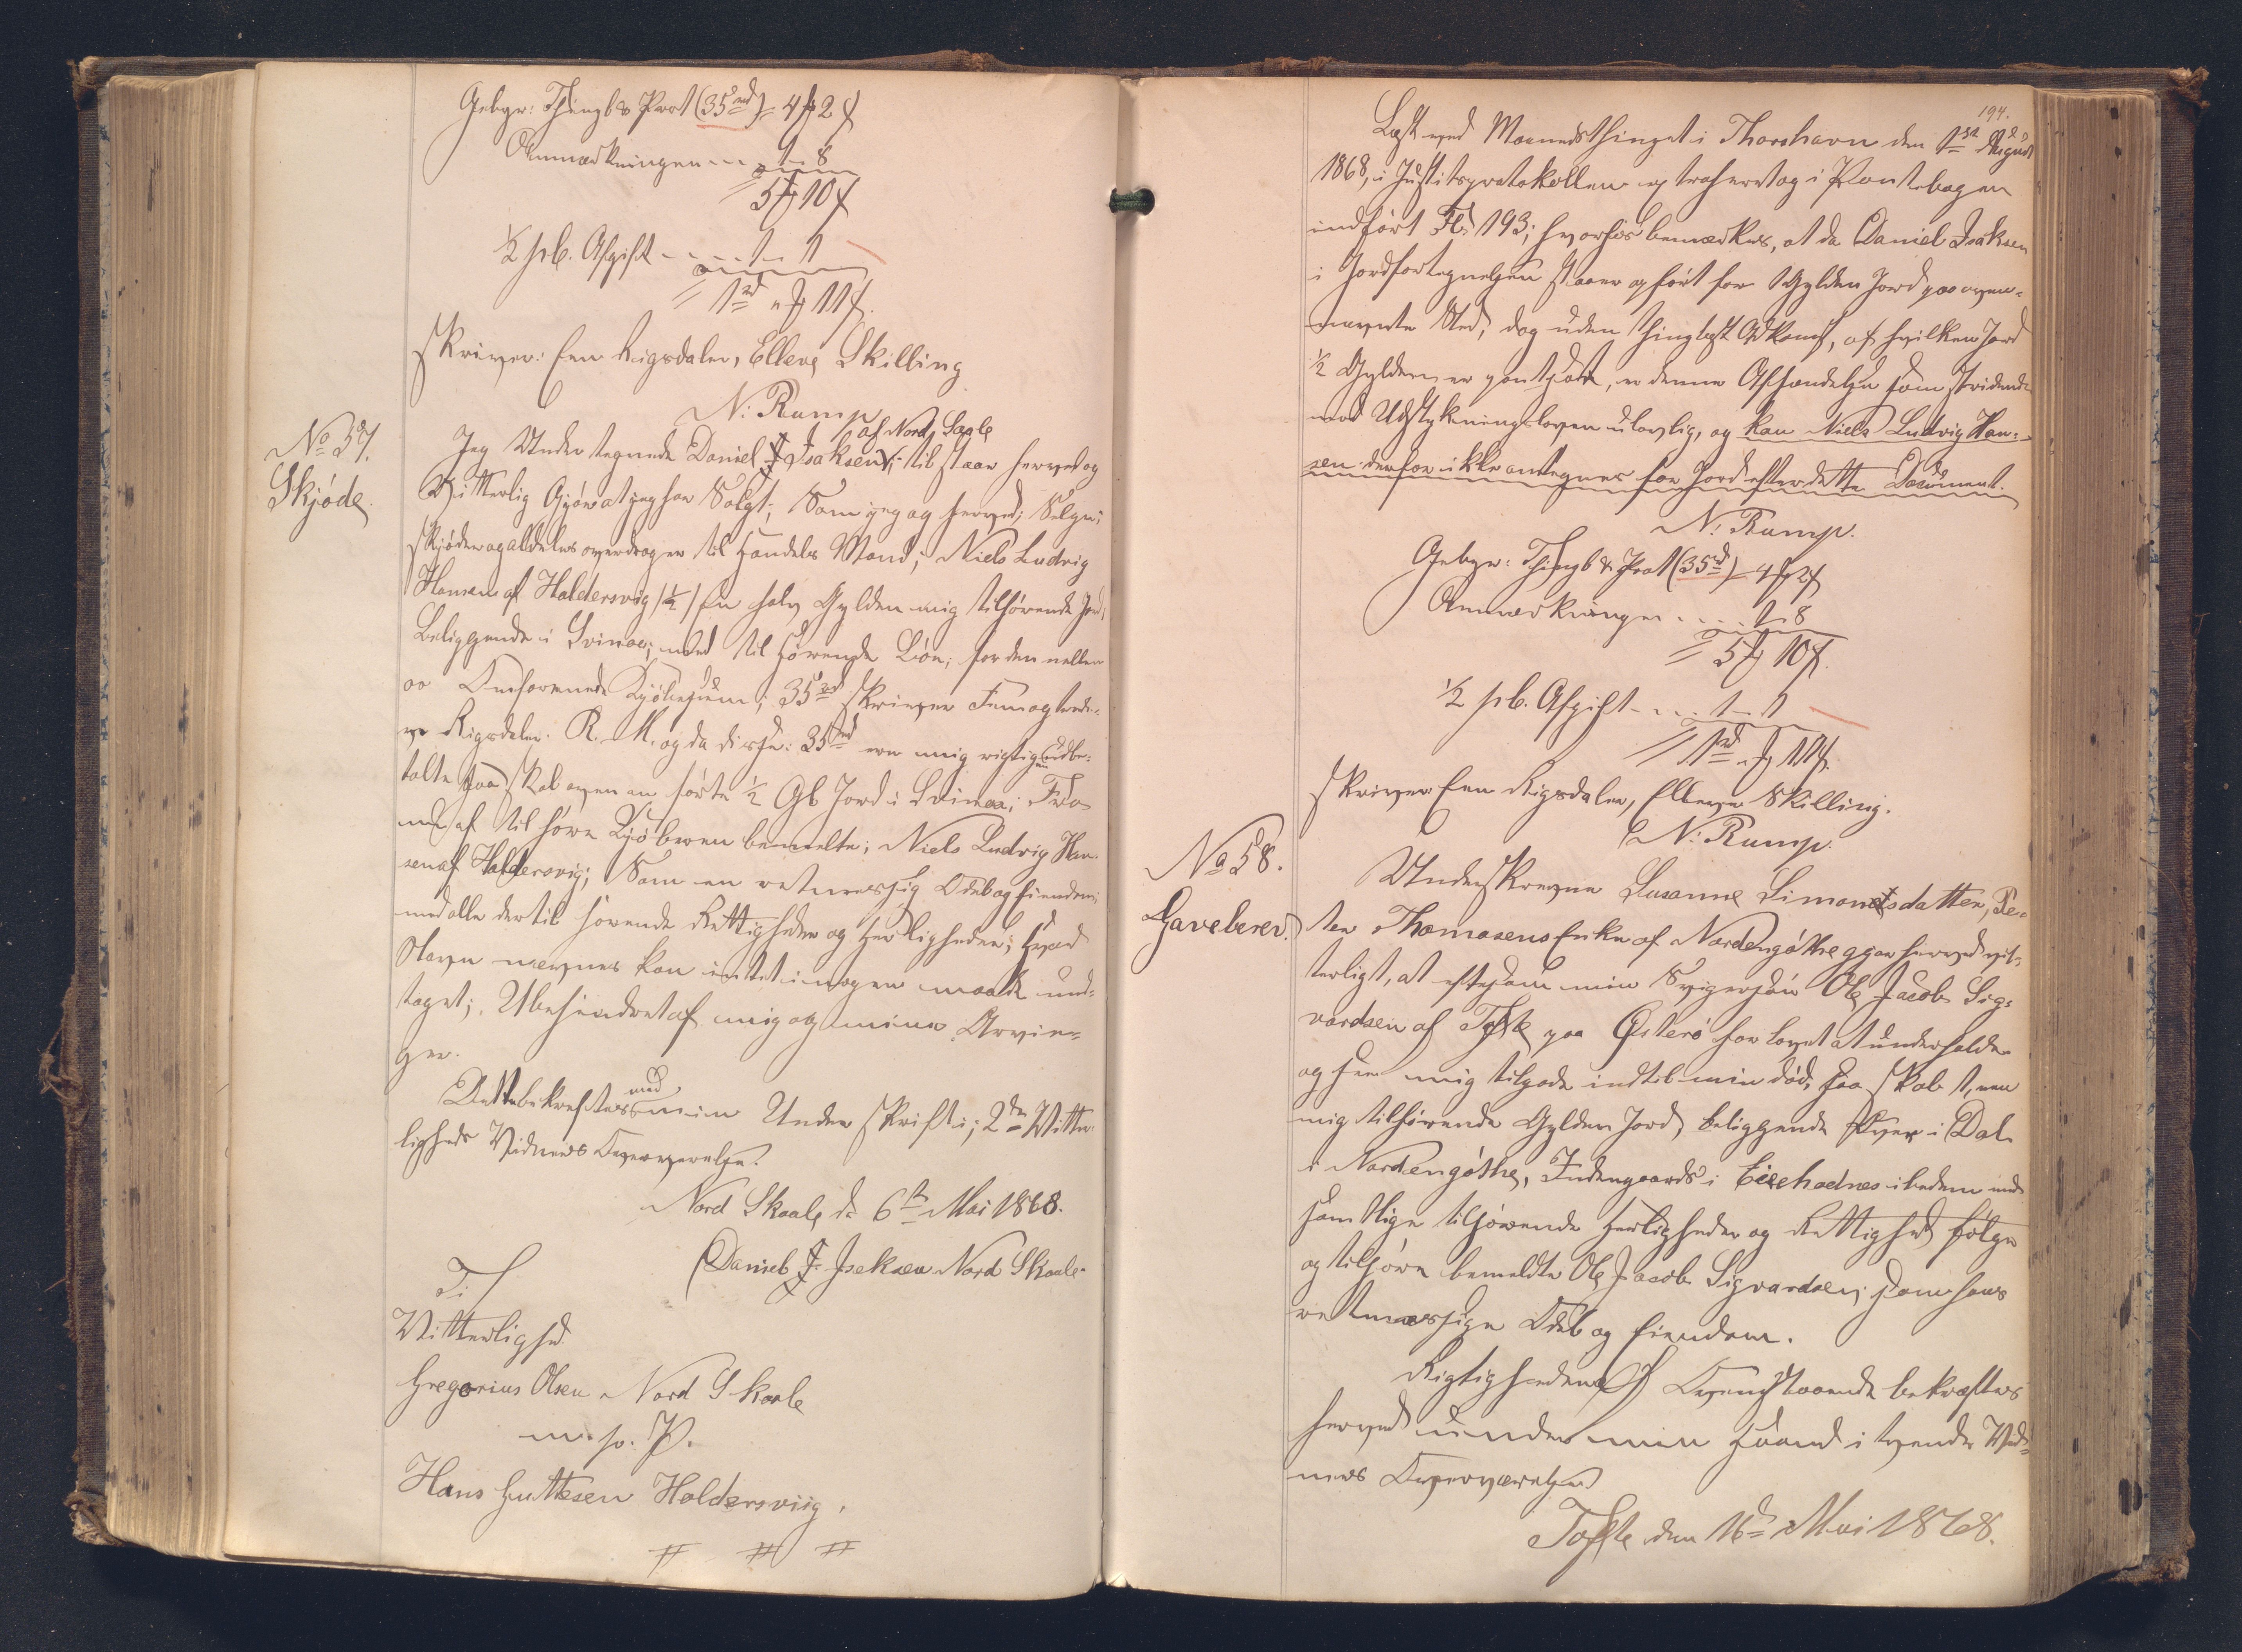 Gebyr: Thingl & Prot (35rd) = 4 ℔ 2 ß
Anmærkningen . . . 1 - 8
5 ℔ 10 ß
½ pCt. Afgift . . . . 1 - 1
1rd „ ℔ 11 ß.
skriver: Een Rigsdaler, Elleve Skilling
N: Rump
No 57.
Skjöde.
af Nord Skaale
Jeg Undertegnede Daniel J Isaksen; tilstaar herved og
Vitterlig Gjör at jeg har Solgt; Som jeg og herved; Selger;
skjöder og aldeles overdrager til Handels Mand; Niels Ludvig
Hansen af Haldersvig /½/ En halv Gylden mig tilhörende Jord,
Beliggende i Svinaae; med til hörende Lön; for den mellem
os Omforenede Kjöbesum; 35rd skriver Femogtrede-
ve Rigsdaler. R. M. og da disse: 35rd ere mig rigtigen udbe-
talte saa skal ovenanförte ½ Gl Jord i Svinaa; Fra
nu af til höre Kjöberen bemeldte; Niels Ludvig Han-
sen af Haldersvig; Som en retmæssig Odel og Eiendom;
med alle dertil hörende Rettigheder og Herligheder; hvad
Navn nævnes kan intet i nogen maade und-
taget; Ubehindret af mig og mine Arvin-
ger.
Dette bekræftes med min Under skrift i; 2de Vitter-
ligheds Vidners Overværelse.
Nord Skaale d: 6te Mai 1868.
Daniel J. Isaksen Nord Skaale
Til
Vitterlighed
Gregorius Olsen Nord Skaale
m. p. P.
Hans Guttesen Haldersviig.
194.
Læst ved Maanedsthinget i Thorshavn den 1ste August
1868, i Justitsprotokollen extraheret og i Pantebogen
indfört Fol. 193; hvorhos bemærkes, at da Daniel Isaksen
i Jordfortegnelsen staaer opfört for 1 Gylden Jord paa oven-
nævnte Sted, dog uden thinglæst Adkomst, af hvilken Jord
½ Gylden er pantsat, er denne Afhændelse som stridende
mod Udstykningsloven ulovlig, og kan Niels Ludvig Han-
sen derfor ikke antegnes for Jord efter dette Document.
N: Rump.
Gebyr: Thingl & Prot (35rd) 4 ℔ 2 ß
Anmærkningen . . . . 1 - 8
5 ℔ 10 ß.
½ pCt. Afgift . . . 1 - 1
1rd „ ℔ 11 ß.
skriver Een Rigsdaler, Elleve Skilling.
N: Rump.
No 58.
Gavebrev.
Underskrevne Susanne Simonsdatter, Pe-
ter Thomasens Enke af Nordengöthe gjör herved vit-
terligt, at eftersom min Svigersön Ole Jacob Sig-
vardsen af Tofte paa Österö har lovet at underholde
og see mig tilgode indtil min död, saa skal 1, een
mig tilhörende Gylden Jord, beliggende över i Dal
i Nordengöthe, Indengaards i ibidem med
samtlige tilhörende Herligheder og Rettigheder fölge
og tilhöre bemeldte Ole Jacob Sigvardsen, som hans
retmæssige Odel og Eiendom.
Rigtigheden af Ovenstaaende bekræftes
herved under min Haand i tvende Vid-
ners Overværelse
Tofte den 16de Mai 1868.